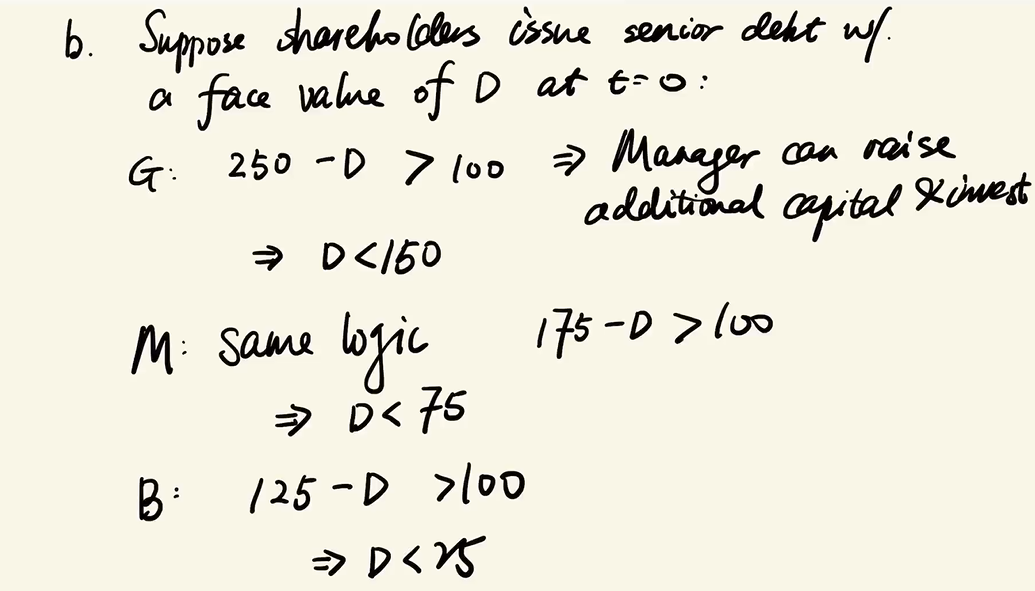 b. Suppose shareholders issue senior debt w/.
a face value of D at t=0:
G: 250 - D > 100 ⇒ Manager can raise
additional capital & invest
⇒ D < 150
M: same logic 175 - D > 100
⇒ D < 75
B: 125 - D > 100
⇒ D < 25